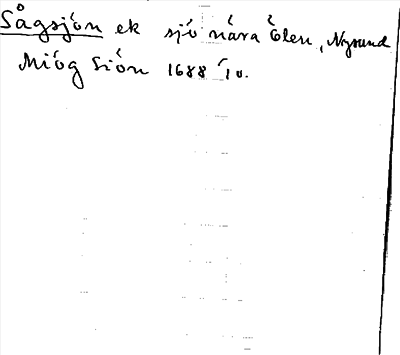 Sågsjön ek sjö nära Ölen, Nysund
Miög Siön 1688 10.